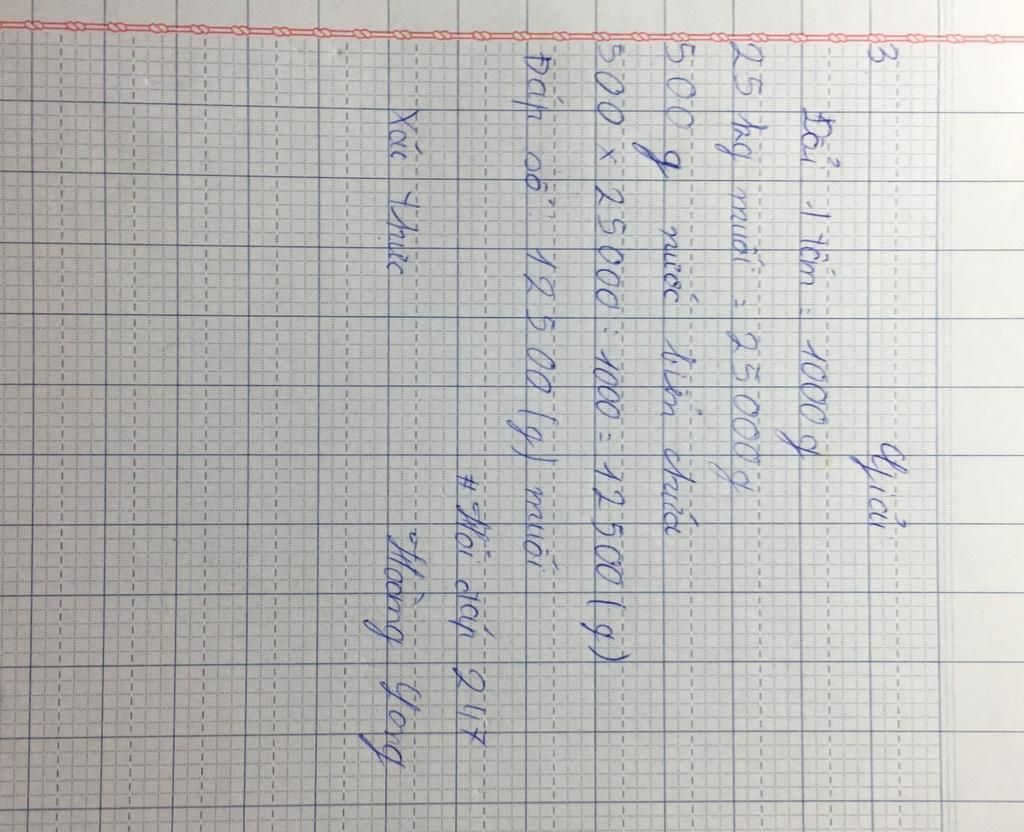 3
Giải
Đổi 1 tấn = 1000 g
25 kg muối = 25000 g
500 g nước biển chứa
500 x 25000 : 1000 = 12500 (g)
Đáp số: 12500 (g) muối
# Hỏi đáp 247
Xác thực Hoàng Yong